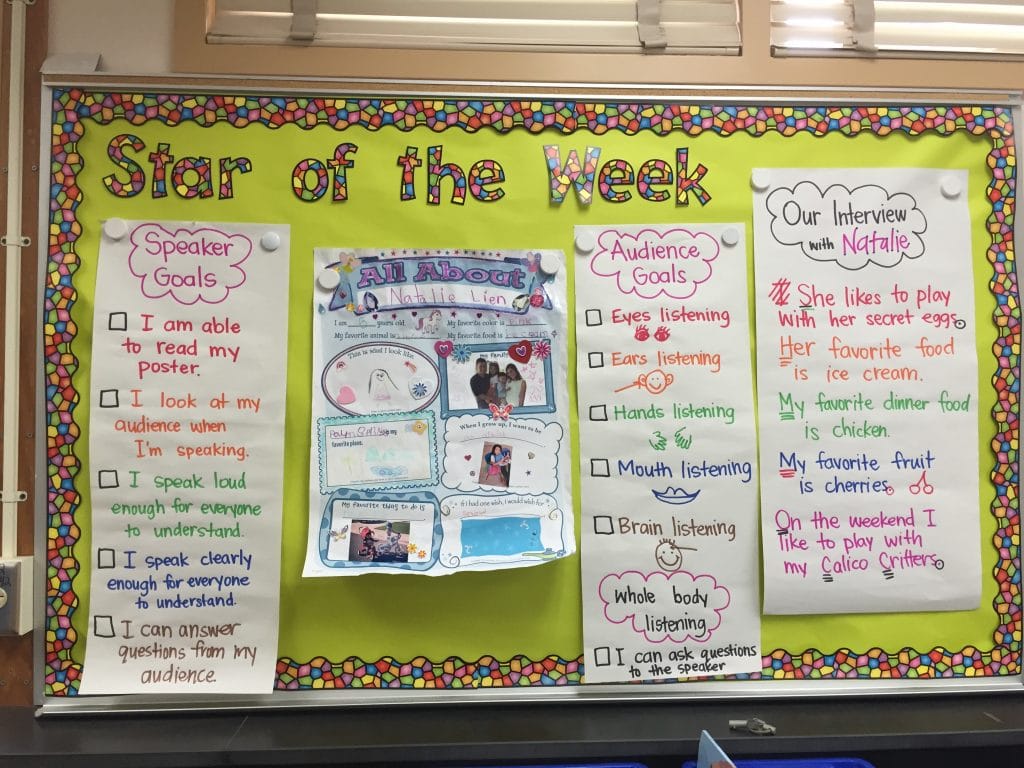 Star of the Week
Speaker
Goals
I am able
to read my
poster.
I look at my
audience when
I'm speaking.
I speak loud
enough for everyone
to understand.
I speak clearly
enough for everyone
to understand.
I can answer
questions from my
audience.
All About
Natalie Lien
I am 6 years old. My favorite color is Pink
My favorite animal is My favorite food is ice cream
This is what I look like.
My family
my
favorite place.
When I grow up, I want to be
My favorite thing to do is
If I had one wish, I would wish for
Audience
Goals
Eyes listening
Ears listening
Hands listening
Mouth listening
Brain listening
Whole body
listening
I can ask questions
to the speaker
Our Interview
with Natalie
She likes to play
with her secret eggs.
Her favorite food
is ice cream.
My favorite dinner food
is chicken.
My favorite fruit
is cherries.
On the weekend I
like to play with
my Calico Critters.